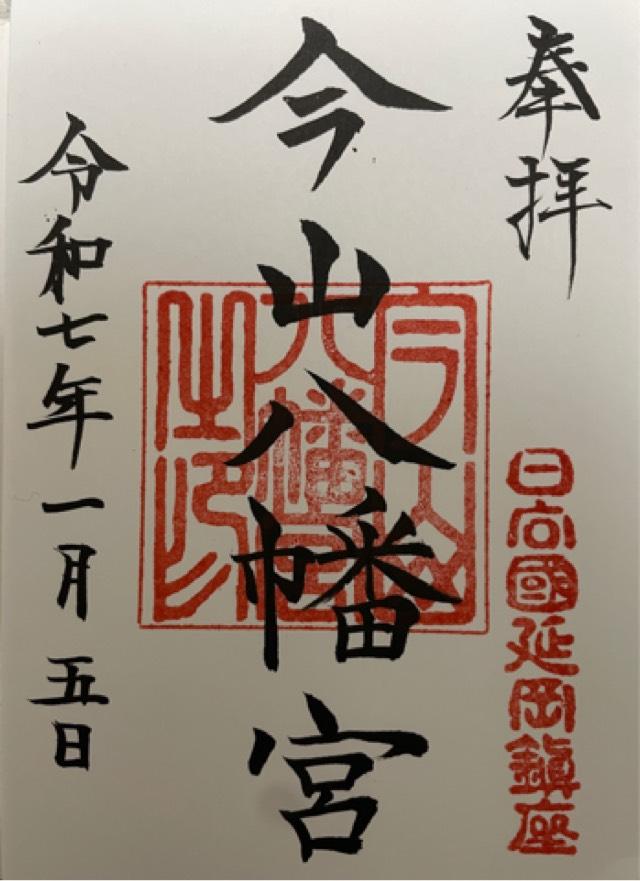 奉拝
日向國延岡鎮座
今山八幡宮
今山八幡宮之印
令和七年一月五日